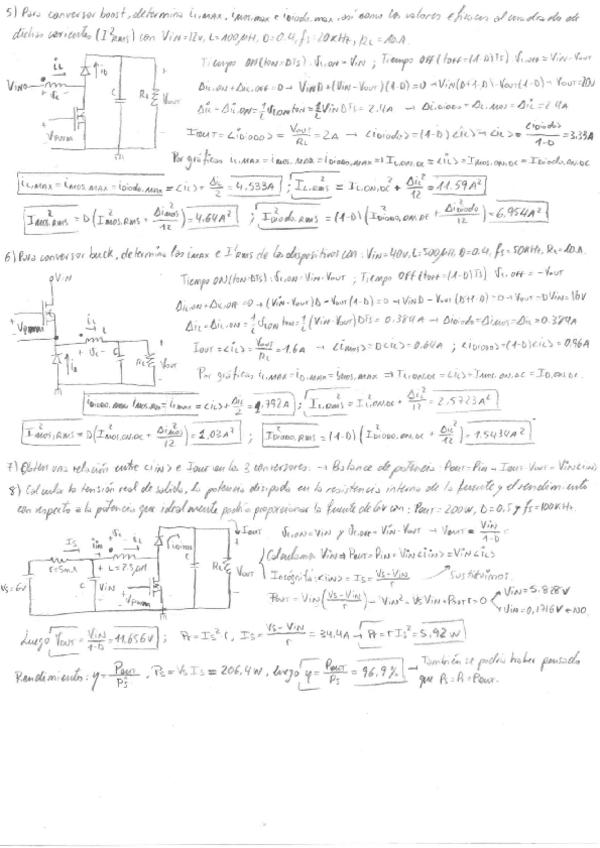 5) Para conversor boost, determina iL,MAX, imos,max e idiodo,max, así como los valores eficaces al cuadrado de
dichas corrientes (I²RMS) con Vin=12V, L=100µH, D=0.4, fs=20kHz, RL=10Ω.
Tiempo ON (ton=DTs): vL,ON = Vin ; Tiempo OFF (toff=(1-D)Ts) vL,OFF = Vin-Vout
ΔiL,ON + ΔiL,OFF = 0 → Vin·D + (Vin-Vout)(1-D) = 0 → Vin(D+1-D) - Vout(1-D) → Vout = 20V
ΔiL = ΔiL,ON = 1/L vL,ON ton = 1/L Vin DTs = 2.4A → ΔiL,DIODO = ΔiL,MOS = ΔiL = 2.4A
Iout = <iDIODO> = Vout/RL = 2A → <iDIODO> = (1-D)<iL> → <iL> = <iDIODO>/1-D = 3.33A
Por gráficas iL,MAX = imos,MAX = idiodo,MAX ⇒ IL,ON,DC = <iL> = Imos,ON,DC = Idiodo,ON,DC
iL,MAX = imos,MAX = idiodo,MAX = <iL> + ΔiL/2 = 4.533A ; I²L,RMS = I²L,ON,DC + ΔiL²/12 = 11.59A²
I²mos,RMS = D(I²mos,RMS + Δimos²/12) = 4.64A² ; I²Diodo,RMS = (1-D)(I²Diodo,ON,DC + Δidiodo²/12) = 6.954A²
6) Para conversor buck, determine los iMAX e I²RMS de los dispositivos con: Vin=40V, L=500µH, D=0.4, fs=50kHz, RL=10Ω.
Tiempo ON (ton=DTs): vL,ON = Vin-Vout ; Tiempo OFF (toff=(1-D)Ts) vL,OFF = -Vout
ΔiL,ON + ΔiL,OFF = 0 → (Vin-Vout)D - Vout(1-D) = 0 → VinD - Vout(D+1-D) = 0 → Vout = DVin = 16V
ΔiL = ΔiL,ON = 1/L vL,ON ton = 1/L (Vin-Vout)DTs = 0.384A → Δidiodo = Δimos = ΔiL = 0.384A
Iout = <iL> = Vout/RL = 1.6A → <imos> = D<iL> = 0.64A ; <idiodo> = (1-D)<iL> = 0.96A
Por gráficas, iL,MAX = iD,MAX = imos,MAX ⇒ IL,ON,DC = <iL> = Imos,ON,DC = ID,ON,DC
idiodo,MAX = imos,MAX = iL,MAX = <iL> + ΔiL/2 = 1.792A ; I²L,RMS = I²L,ON,DC + ΔiL²/12 = 2.5723A²
I²mos,RMS = D(I²mos,ON,DC + Δimos²/12) = 1.03A² ; I²Diodo,RMS = (1-D)(I²Diodo,ON,DC + ΔiL²/12) = 1.5434A²
7) Obtener una relación entre <iin> e Iout en los 3 conversores. → Balance de potencia: Pout = Pin → Iout·Vout = Vin<iin>
8) Calcula la tensión real de salida, la potencia disipada en la resistencia interna de la fuente y el rendimiento
con respecto a la potencia que idealmente podría proporcionar la fuente de 6V con: Pout = 200W, D=0.5 y fs=100kHz.
vL,ON = Vin y vL,OFF = Vin-Vout → Vout = Vin/1-D
Calculamos Vin ⇒ Pout = Pin = Vin<iin> = Vin<iL>
Incógnita: <iin> = Is = Vs-Vin/r
Sustituimos
Pout = Vin(Vs-Vin/r) → Vin² - VsVin + Pout r = 0
Vin = 5.828V
Vin = 0.1716V ← NO
Luego Vout = Vin/1-D = 11.656V ; Pr = Is² r, Is = Vs-Vin/r = 34.4A → Pr = rIs² = 5.92W
Rendimiento: η = Pout/Ps, Ps = VsIs = 206.4W, luego η = Pout/Ps = 96.9% → También se podría haber pensado
que Ps = Pr + Pout.